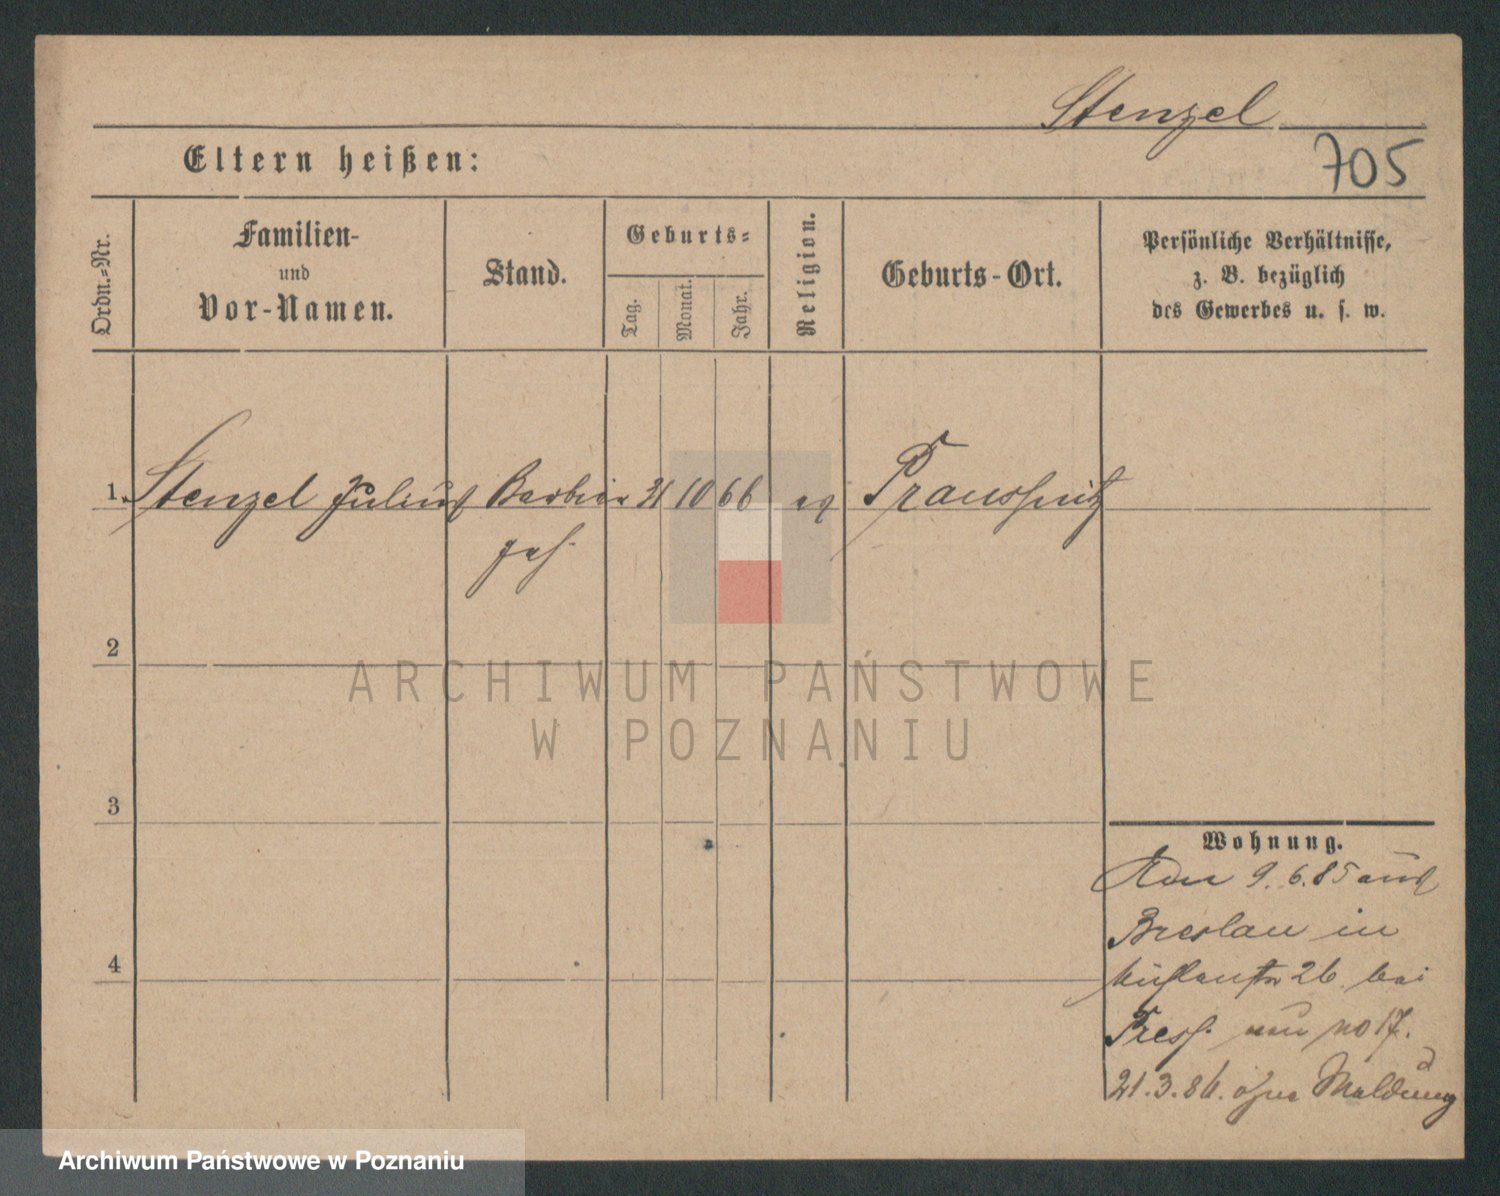 Stenzel
705
Eltern heißen:
Ordn.-Nr.
Familien-
und
Vor-Namen.
Stand.
Geburts-
Tag.
Monat.
Jahr.
Religion.
Geburts-Ort.
Persönliche Verhältnisse,
z. B. bezüglich
des Gewerbes u. s. w.
1. Stenzel Julius Barbier 21 10 66 ev Prausnitz
geh.
2
ARCHIWUM PAŃSTWOWE
W POZNANIU
3
Wohnung.
9. 6. 85 aus
Breslau in
26 bei
no 17.
4
21. 3. 86. ohne Meldung
Archiwum Państwowe w Poznaniu